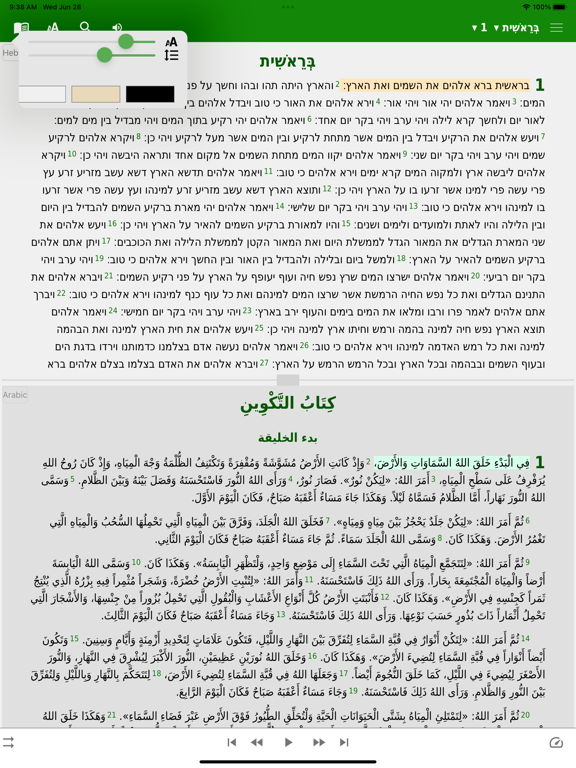 9:38 AM Wed Jun 28
100%
בְּרֵאשִׁית ▾ 1 ▾
Heb
AA
בְּרֵאשִׁית
1 בראשית ברא אלהים את השמים ואת הארץ׃ 2 והארץ היתה תהו ובהו וחשך על פני
המים׃ 3 ויאמר אלהים יהי אור ויהי אור׃ 4 וירא אלהים את האור כי טוב ויבדל אלהים בין
לאור יום ולחשך קרא לילה ויהי ערב ויהי בקר יום אחד׃ 6 ויאמר אלהים יהי רקיע בתוך המים ויהי מבדיל בין מים למים׃
7 ויעש אלהים את הרקיע ויבדל בין המים אשר מתחת לרקיע ובין המים אשר מעל לרקיע ויהי כן׃ 8 ויקרא אלהים לרקיע
שמים ויהי ערב ויהי בקר יום שני׃ 9 ויאמר אלהים יקוו המים מתחת השמים אל מקום אחד ותראה היבשה ויהי כן׃ 10 ויקרא
אלהים ליבשה ארץ ולמקוה המים קרא ימים וירא אלהים כי טוב׃ 11 ויאמר אלהים תדשא הארץ דשא עשב מזריע זרע עץ
פרי עשה פרי למינו אשר זרעו בו על הארץ ויהי כן׃ 12 ותוצא הארץ דשא עשב מזריע זרע למינהו ועץ עשה פרי אשר זרעו
בו למינהו וירא אלהים כי טוב׃ 13 ויהי ערב ויהי בקר יום שלישי׃ 14 ויאמר אלהים יהי מארת ברקיע השמים להבדיל בין היום
ובין הלילה והיו לאתת ולמועדים ולימים ושנים׃ 15 והיו למאורת ברקיע השמים להאיר על הארץ ויהי כן׃ 16 ויעש אלהים את
שני המארת הגדלים את המאור הגדל לממשלת היום ואת המאור הקטן לממשלת הלילה ואת הכוכבים׃ 17 ויתן אתם אלהים
ברקיע השמים להאיר על הארץ׃ 18 ולמשל ביום ובלילה ולהבדיל בין האור ובין החשך וירא אלהים כי טוב׃ 19 ויהי ערב ויהי
בקר יום רביעי׃ 20 ויאמר אלהים ישרצו המים שרץ נפש חיה ועוף יעופף על הארץ על פני רקיע השמים׃ 21 ויברא אלהים את
התנינם הגדלים ואת כל נפש החיה הרמשת אשר שרצו המים למינהם ואת כל עוף כנף למינהו וירא אלהים כי טוב׃ 22 ויברך
אתם אלהים לאמר פרו ורבו ומלאו את המים בימים והעוף ירב בארץ׃ 23 ויהי ערב ויהי בקר יום חמישי׃ 24 ויאמר אלהים
תוצא הארץ נפש חיה למינה בהמה ורמש וחיתו ארץ למינה ויהי כן׃ 25 ויעש אלהים את חית הארץ למינה ואת הבהמה
למינה ואת כל רמש האדמה למינהו וירא אלהים כי טוב׃ 26 ויאמר אלהים נעשה אדם בצלמנו כדמותנו וירדו בדגת הים
ובעוף השמים ובבהמה ובכל הארץ ובכל הרמש הרמש על הארץ׃ 27 ויברא אלהים את האדם בצלמו בצלם אלהים ברא
Arabic
كِتَابُ التَّكْوِينِ
بدء الخليقة
1 فِي الْبَدْءِ خَلَقَ اللهُ السَّمَاوَاتِ وَالأَرْضَ، 2 وَإِذْ كَانَتِ الأَرْضُ مُشَوَّشَةً وَمُقْفِرَةً وَتَكْتَنِفُ الظُّلْمَةُ وَجْهَ الْمِيَاهِ، وَإِذْ كَانَ رُوحُ اللهِ
يُرَفْرِفُ عَلَى سَطْحِ الْمِيَاهِ، 3 أَمَرَ اللهُ: «لِيَكُنْ نُورٌ». فَصَارَ نُورٌ، 4 وَرَأَى اللهُ النُّورَ فَاسْتَحْسَنَهُ وَفَصَلَ بَيْنَهُ وَبَيْنَ الظَّلامِ. 5 وَسَمَّى
اللهُ النُّورَ نَهَاراً، أَمَّا الظَّلامُ فَسَمَّاهُ لَيْلاً. وَهَكَذَا جَاءَ مَسَاءٌ أَعْقَبَهُ صَبَاحٌ، فَكَانَ الْيَوْمَ الأَوَّلَ.
6 ثُمَّ أَمَرَ اللهُ: «لِيَكُنْ جَلَدٌ يَحْجُزُ بَيْنَ مِيَاهٍ وَمِيَاهٍ». 7 فَخَلَقَ اللهُ الْجَلَدَ، وَفَرَّقَ بَيْنَ الْمِيَاهِ الَّتِي تَحْمِلُهَا السُّحُبُ وَالْمِيَاهِ الَّتِي
تَغْمُرُ الأَرْضَ. وَهَكَذَا كَانَ. 8 وَسَمَّى اللهُ الْجَلَدَ سَمَاءً. ثُمَّ جَاءَ مَسَاءٌ أَعْقَبَهُ صَبَاحٌ فَكَانَ الْيَوْمَ الثَّانِي.
9 ثُمَّ أَمَرَ اللهُ: «لِتَتَجَمَّعِ الْمِيَاهُ الَّتِي تَحْتَ السَّمَاءِ إِلَى مَوْضِعٍ وَاحِدٍ، وَلْتَظْهَرِ الْيَابِسَةُ». وَهَكَذَا كَانَ. 10 وَسَمَّى اللهُ الْيَابِسَةَ
أَرْضاً وَالْمِيَاهَ الْمُجْتَمِعَةَ بِحَاراً. وَرَأَى اللهُ ذَلِكَ فَاسْتَحْسَنَهُ. 11 وَأَمَرَ اللهُ: «لِتُنْبِتِ الأَرْضُ عُشْباً وَبَقْلاً مُبْزِراً، وَشَجَراً مُثْمِراً فِيهِ بِزْرُهُ الَّذِي يُنْتِجُ
ثَمَراً كَجِنْسِهِ فِي الأَرْضِ». وَهَكَذَا كَانَ. 12 فَأَنْبَتَتِ الأَرْضُ كُلَّ أَنْوَاعِ الأَعْشَابِ وَالْبُقُولِ الَّتِي تَحْمِلُ بُزُوراً مِنْ جِنْسِهَا، وَالأَشْجَارَ الَّتِي
تَحْمِلُ أَثْمَاراً ذَاتَ بُذُورٍ حَسَبَ نَوْعِهَا. وَرَأَى اللهُ ذَلِكَ فَاسْتَحْسَنَهُ. 13 وَجَاءَ مَسَاءٌ أَعْقَبَهُ صَبَاحٌ فَكَانَ الْيَوْمَ الثَّالِثَ.
14 ثُمَّ أَمَرَ اللهُ: «لِتَكُنْ أَنْوَارٌ فِي قُبَّةِ السَّمَاءِ لِتُفَرِّقَ بَيْنَ النَّهَارِ وَاللَّيْلِ، فَتَكُونَ عَلامَاتٍ لِتَحْدِيدِ أَزْمِنَةٍ وَأَيَّامٍ وَسِنِينَ. 15 وَتَكُونَ
أَيْضاً أَنْوَاراً فِي قُبَّةِ السَّمَاءِ لِتُضِيءَ الأَرْضَ». وَهَكَذَا كَانَ. 16 وَخَلَقَ اللهُ نُورَيْنِ عَظِيمَيْنِ، النُّورَ الأَكْبَرَ لِيُشْرِقَ فِي النَّهَارِ، وَالنُّورَ
الأَصْغَرَ لِيُضِيءَ فِي اللَّيْلِ، كَمَا خَلَقَ النُّجُومَ أَيْضاً. 17 وَجَعَلَهَا اللهُ فِي قُبَّةِ السَّمَاءِ لِتُضِيءَ الأَرْضَ، 18 لِتَتَحَكَّمَ بِالنَّهَارِ وَبِاللَّيْلِ وَلِتُفَرِّقَ
بَيْنَ النُّورِ وَالظَّلامِ. وَرَأَى اللهُ ذَلِكَ فَاسْتَحْسَنَهُ. 19 وَجَاءَ مَسَاءٌ أَعْقَبَهُ صَبَاحٌ فَكَانَ الْيَوْمَ الرَّابِعَ.
20 ثُمَّ أَمَرَ اللهُ: «لِتَمْتَلِئِ الْمِيَاهُ بِشَتَّى الْحَيَوَانَاتِ الْحَيَّةِ وَلْتُحَلِّقِ الطُّيُورُ فَوْقَ الأَرْضِ عَبْرَ فَضَاءِ السَّمَاءِ». 21 وَهَكَذَا خَلَقَ اللهُ